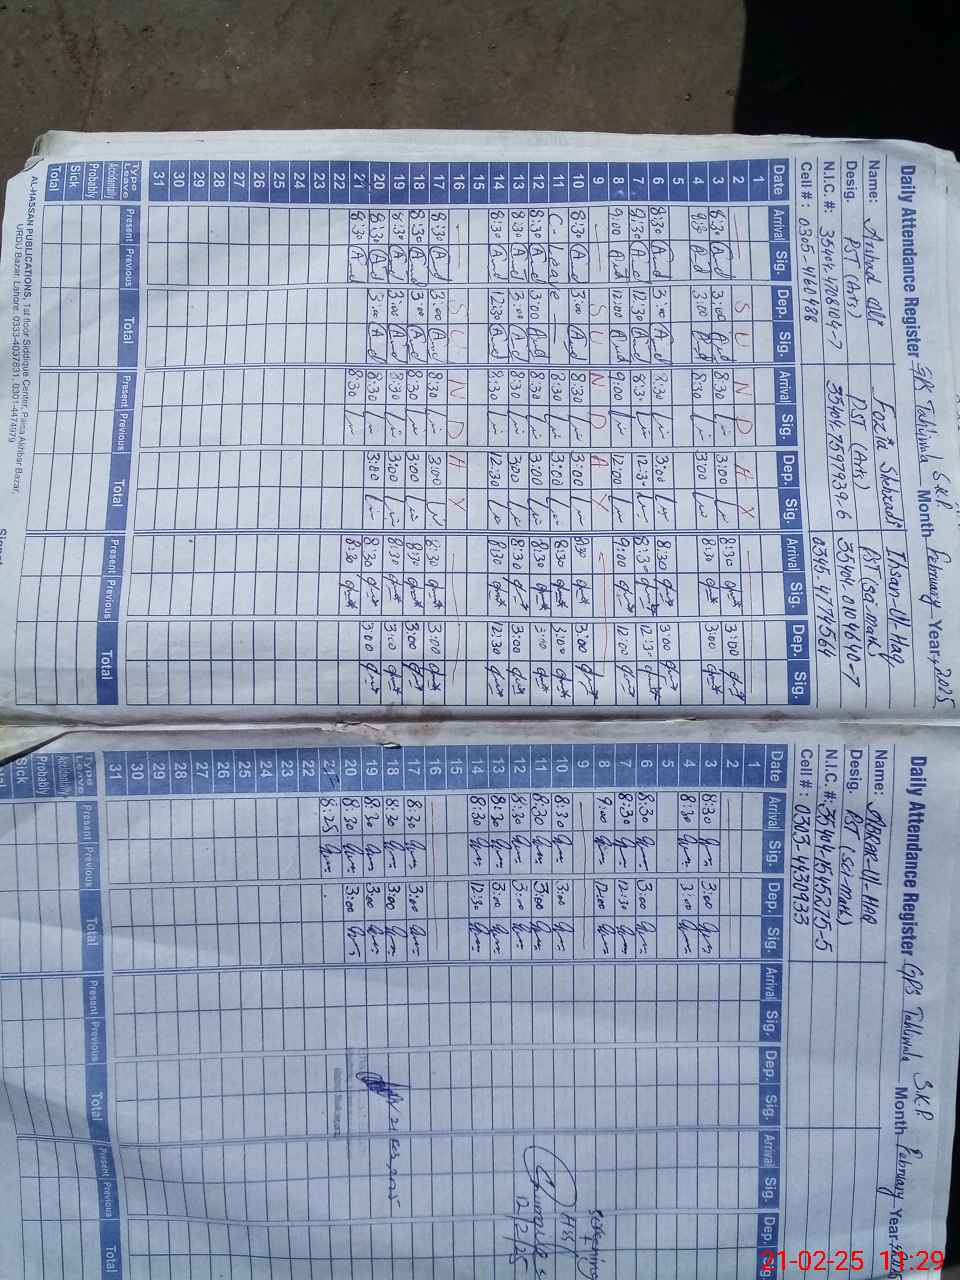 Daily Attendance Register GPS Tahliwala S.K.P. Month February Year, 2025
Name: Arshad Ali Fozia Shehzadi Ihsan-Ul-Haq
Desig. PST (Arts) PST (Arts) PST (Sci-math)
N.I.C. #:
Cell #: 0305-4160488 0345-4774564
Date Arrival Sig. Dep. Sig. Arrival Sig. Dep. Sig. Arrival Sig. Dep. Sig.
1
2 S U N D A Y
3 8:30 3:00 8:30 3:00 8:30 3:00
4 8:30 3:00 8:30 3:00 8:30 3:00
5
6 8:30 3:00 8:30 3:00 8:30 3:00
7 8:30 12:30 8:30 12:30 8:30 12:30
8 9:00 12:00 9:00 12:00 9:00 12:00
9 S U N D A Y
10 8:30 3:00 8:30 3:00 8:30 3:00
11 C-Leave 8:30 3:00 8:30 3:00
12 8:30 3:00 8:30 3:00 8:30 3:00
13 8:30 3:00 8:30 3:00 8:30 3:00
14 8:30 12:30 8:30 12:30 8:30 12:30
15
16 S U N D A Y
17 8:30 3:00 8:30 3:00 8:30 3:00
18 8:30 3:00 8:30 3:00 8:30 3:00
19 8:30 3:00 8:30 3:00 8:30 3:00
20 8:30 3:00 8:30 3:00 8:30 3:00
21 8:30 8:30 8:30
22
23
24
25
26
27
28
29
30
31
Type Leave Present Previous Total Present Previous Total Present Previous Total
Accidentally
Probably
Sick
Total
AL-HASSAN PUBLICATIONS, 1st floor Siddique Center, Paisa Akhbar Bazar,
URDU Bazar, Lahore. 0333-4037831, 0301-4474979
Daily Attendance Register GPS Tahliwala S.K.P. Month February Year,
Name: ABRAR-Ul-HAQ
Desig. PST (Sci-math)
N.I.C. #: 35404-1545275-5
Cell #: 0303-4430933
Date Arrival Sig. Dep. Sig. Arrival Sig. Dep. Sig. Arrival Sig. Dep.
1
2
3 8:30 3:00
4 8:30 3:00
5
6 8:30 3:00
7 8:30 12:30
8 9:00 12:00
9
10 8:30 3:00
11 8:30 3:00
12 8:30 3:00
13 8:30 3:00
14 8:30 12:30
15
16
17 8:30 3:00
18 8:30 3:00
19 8:30 3:00
20 8:30 3:00
21 8:25
22
23
24
25
26
27
28
29
30
31
Screening
12/2/25
21 Feb, 2025
Type Leave Present Previous Total Present Previous Total Present Previous Total
Accidentally
Probably
Sick
21-02-25 11:29